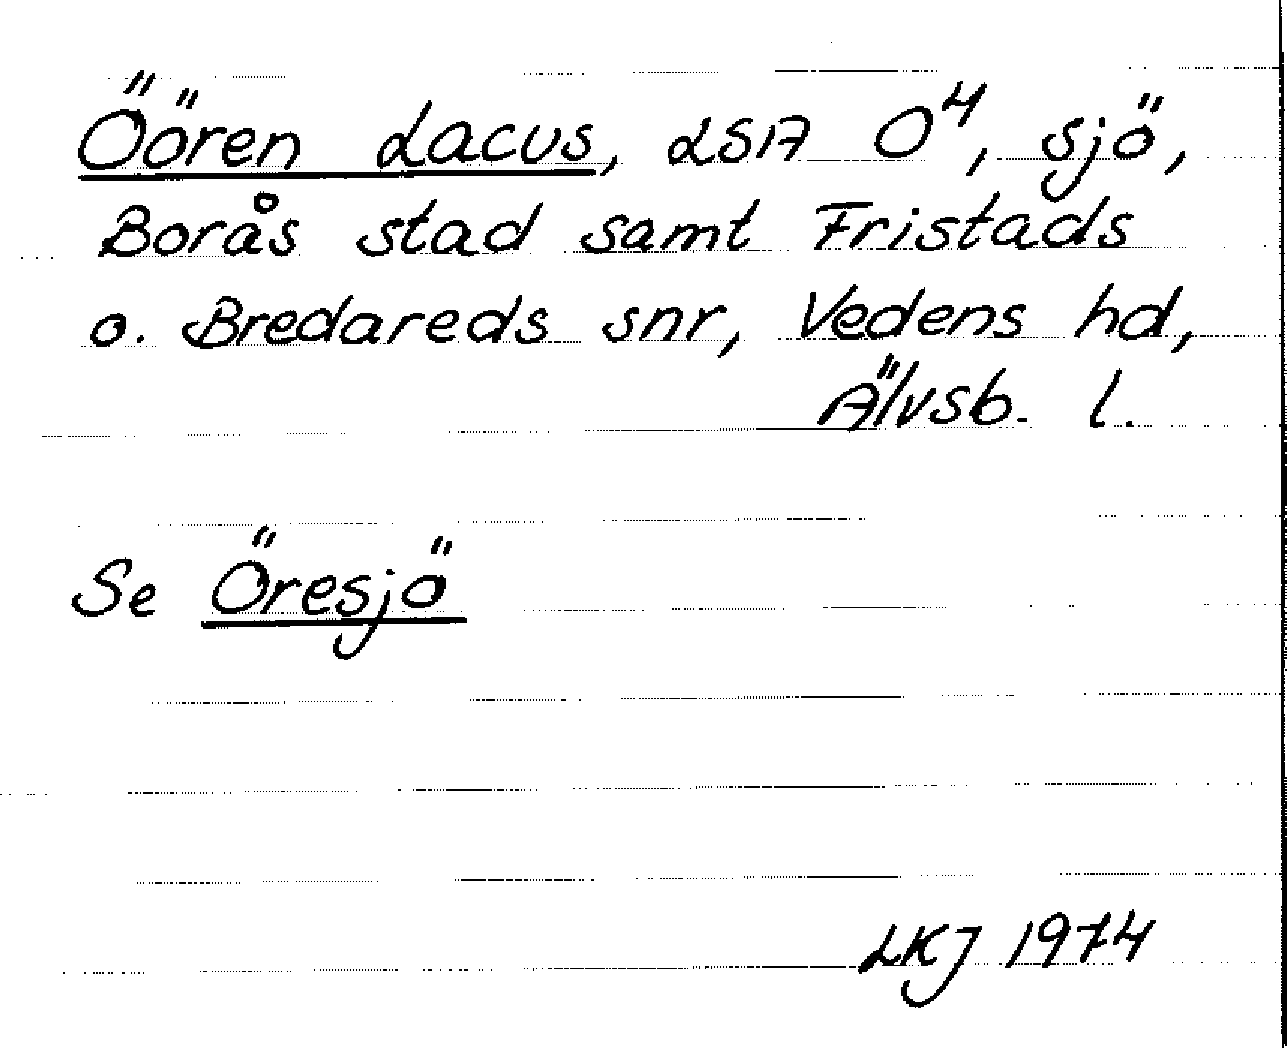 Öören Lacus, LSA O⁴, sjö,
Borås stad samt Fristads
o. Bredareds snr, Vedens hd,
Älvsb. l.
Se Öresjö
LKJ 1974